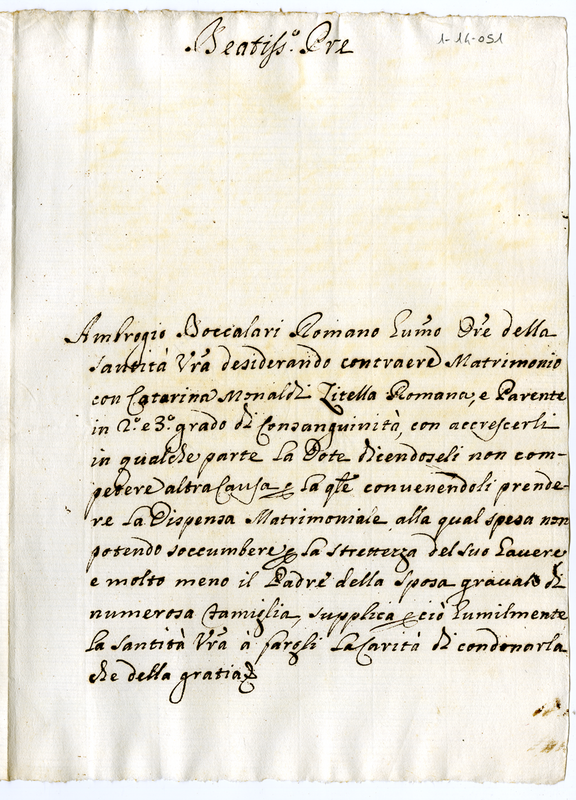 Beatiss.º Pre
1-14-051
Ambrogio Boccalari Romano humo Ore della
Santità Vra desiderando contraere Matrimonio
con Catarina Monaldi Zitella Romana, e Parente
in 2.º e 3.º grado di Consanguinità, con accrescerli
in qualche parte la Dote dicendoseli non com-
petere altra Causa p la qle convenendoli prende-
re la Dispensa Matrimoniale, alla qual spesa non
potendo soccumbere p la strettezza del suo havere
e molto meno il Padre della Sposa gravato di
numerosa famiglia, supplica p ciò humilmente
la Santità Vra à fargli la Carità di condonarla
che della gratia